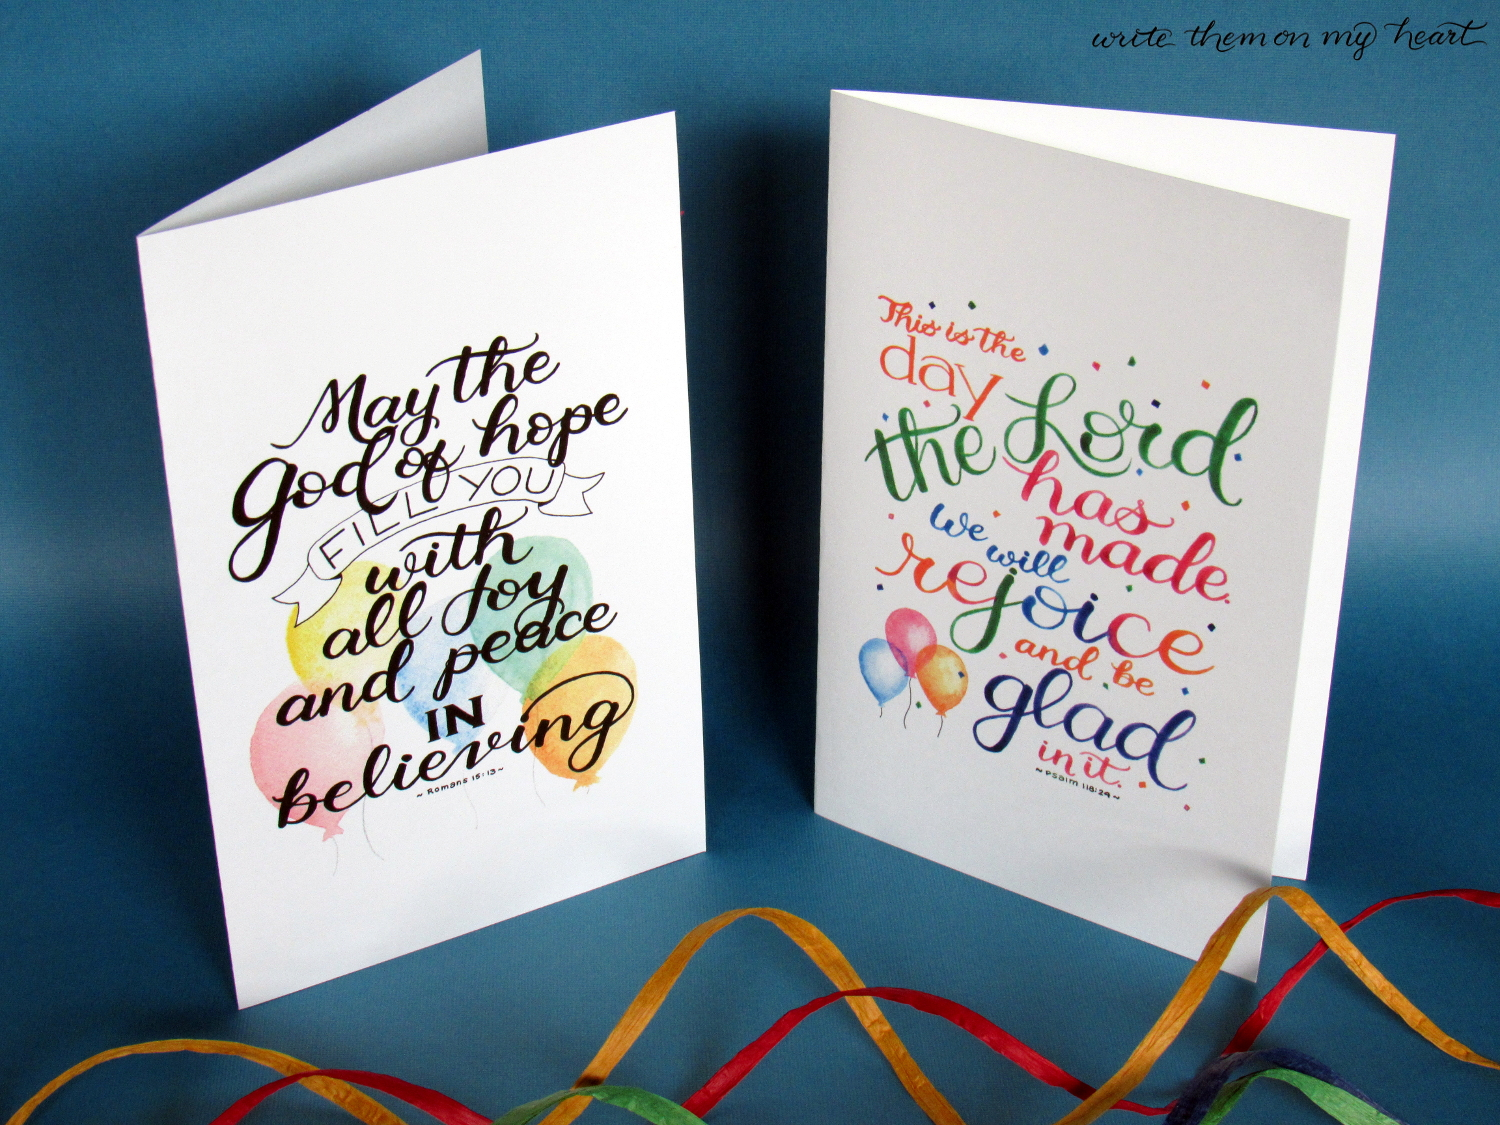 write them on my heart
May the
god of hope
FILL YOU
with
all Joy
and peace
IN
believing
~ Romans 15:13 ~
This is the
day
the Lord
has
made.
We
will
rejoice
and be
glad
in it.
~ Psalm 118:24 ~